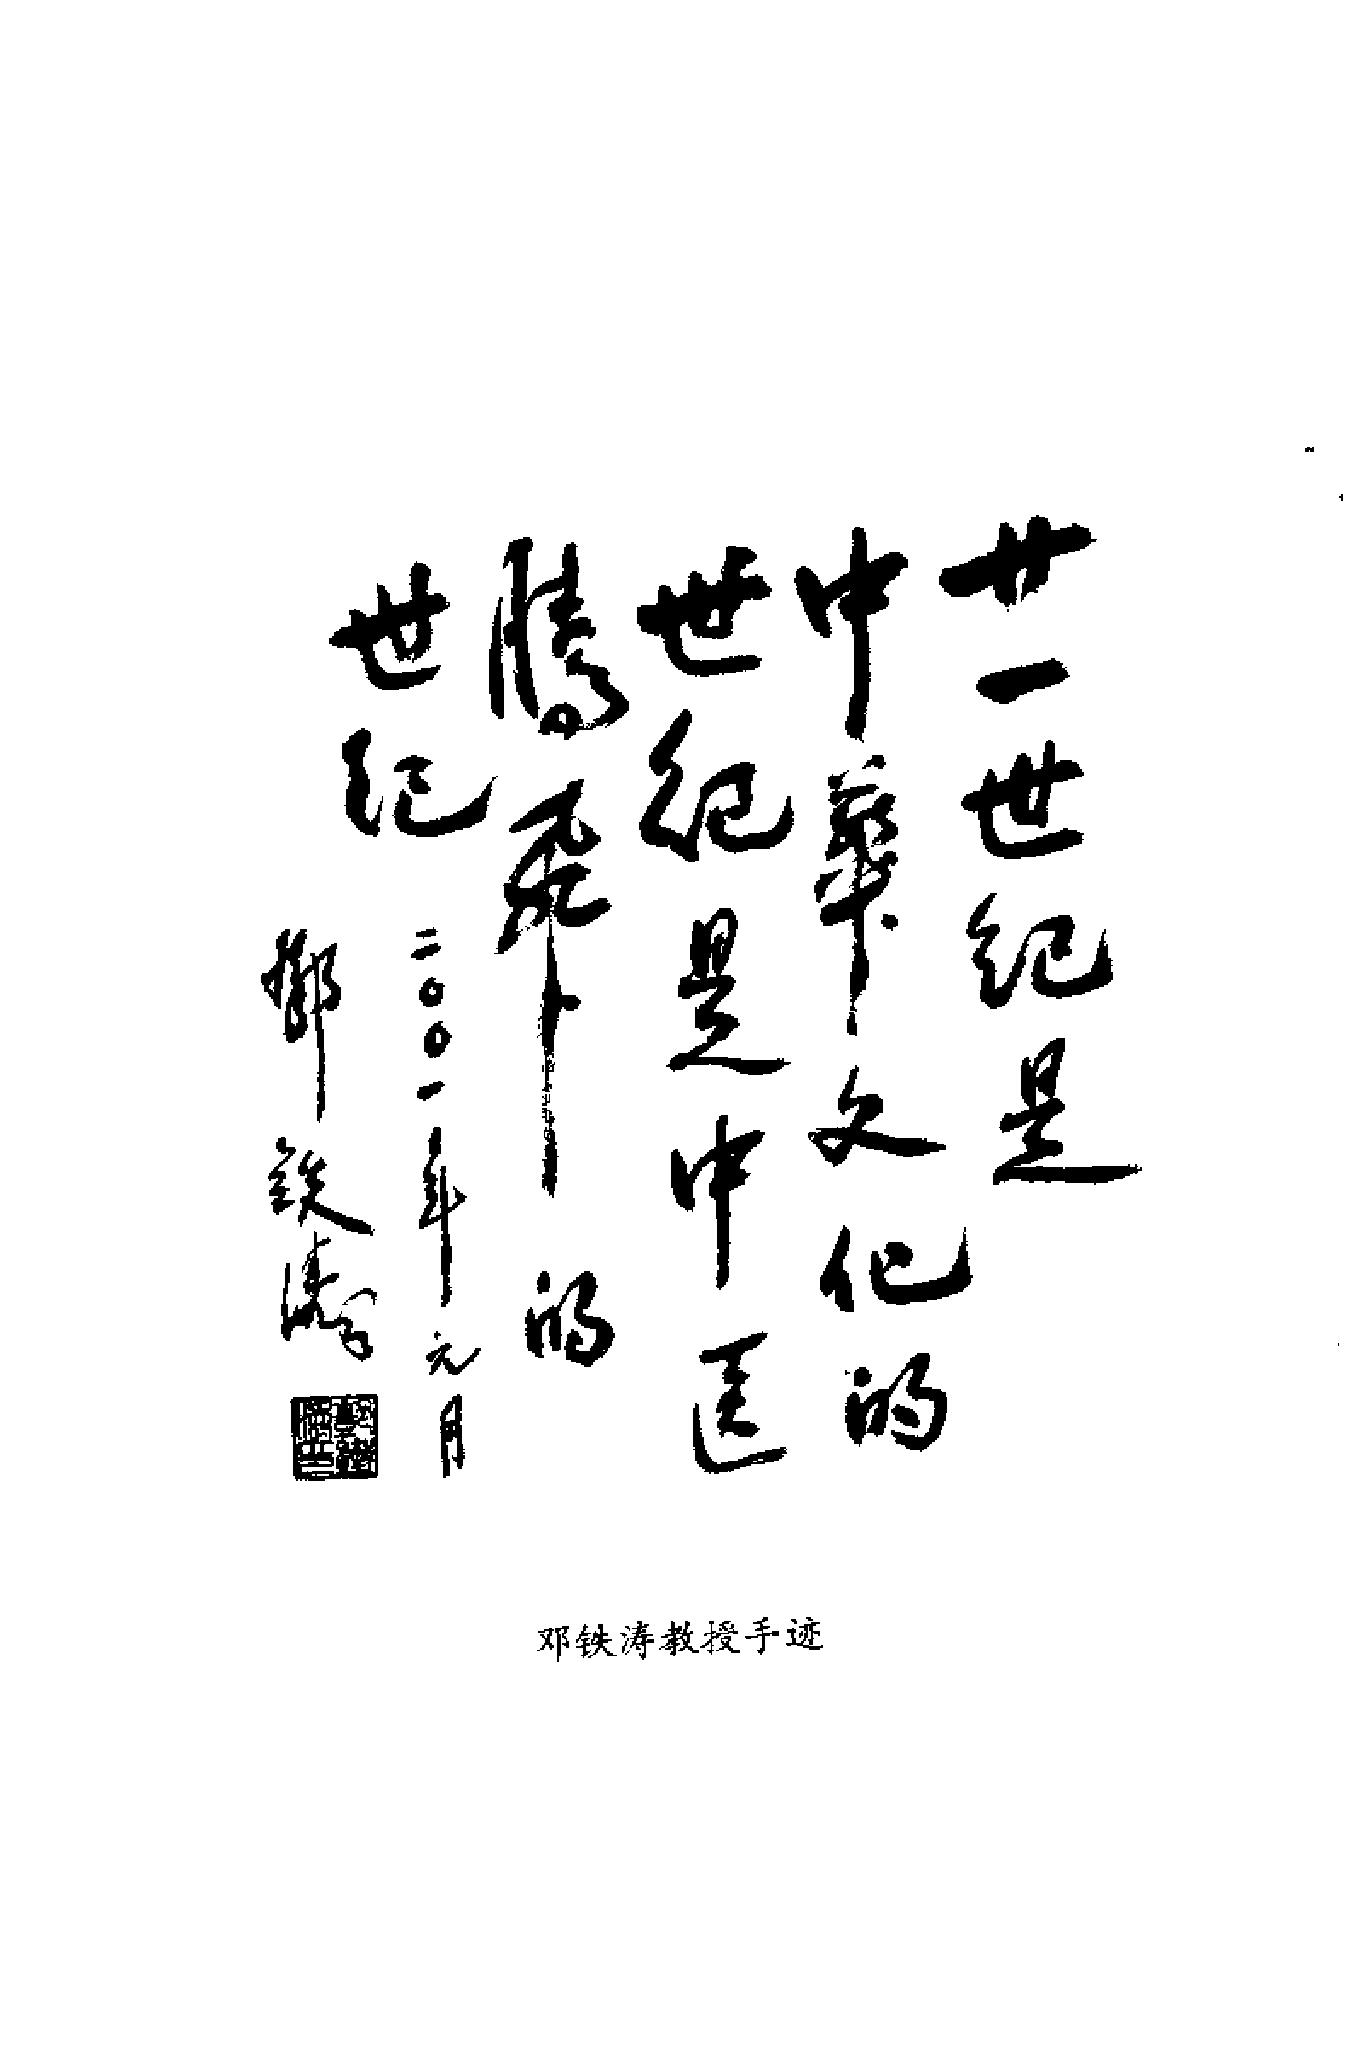 廿一世纪是
中華文化的
世纪是中医
腾飛的
世纪
二〇〇一年元月
鄧铁涛
邓铁涛教授手迹